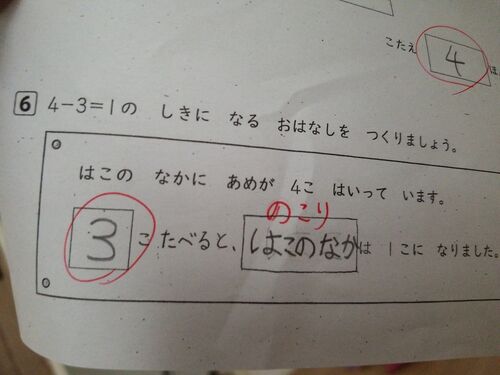 こたえ 4 ほ
6 4-3=1の しきに なる おはなしを つくりましょう。
はこの なかに あめが 4こ はいって います。
のこり
3 こ たべると、はこのなか は 1こに なりました。